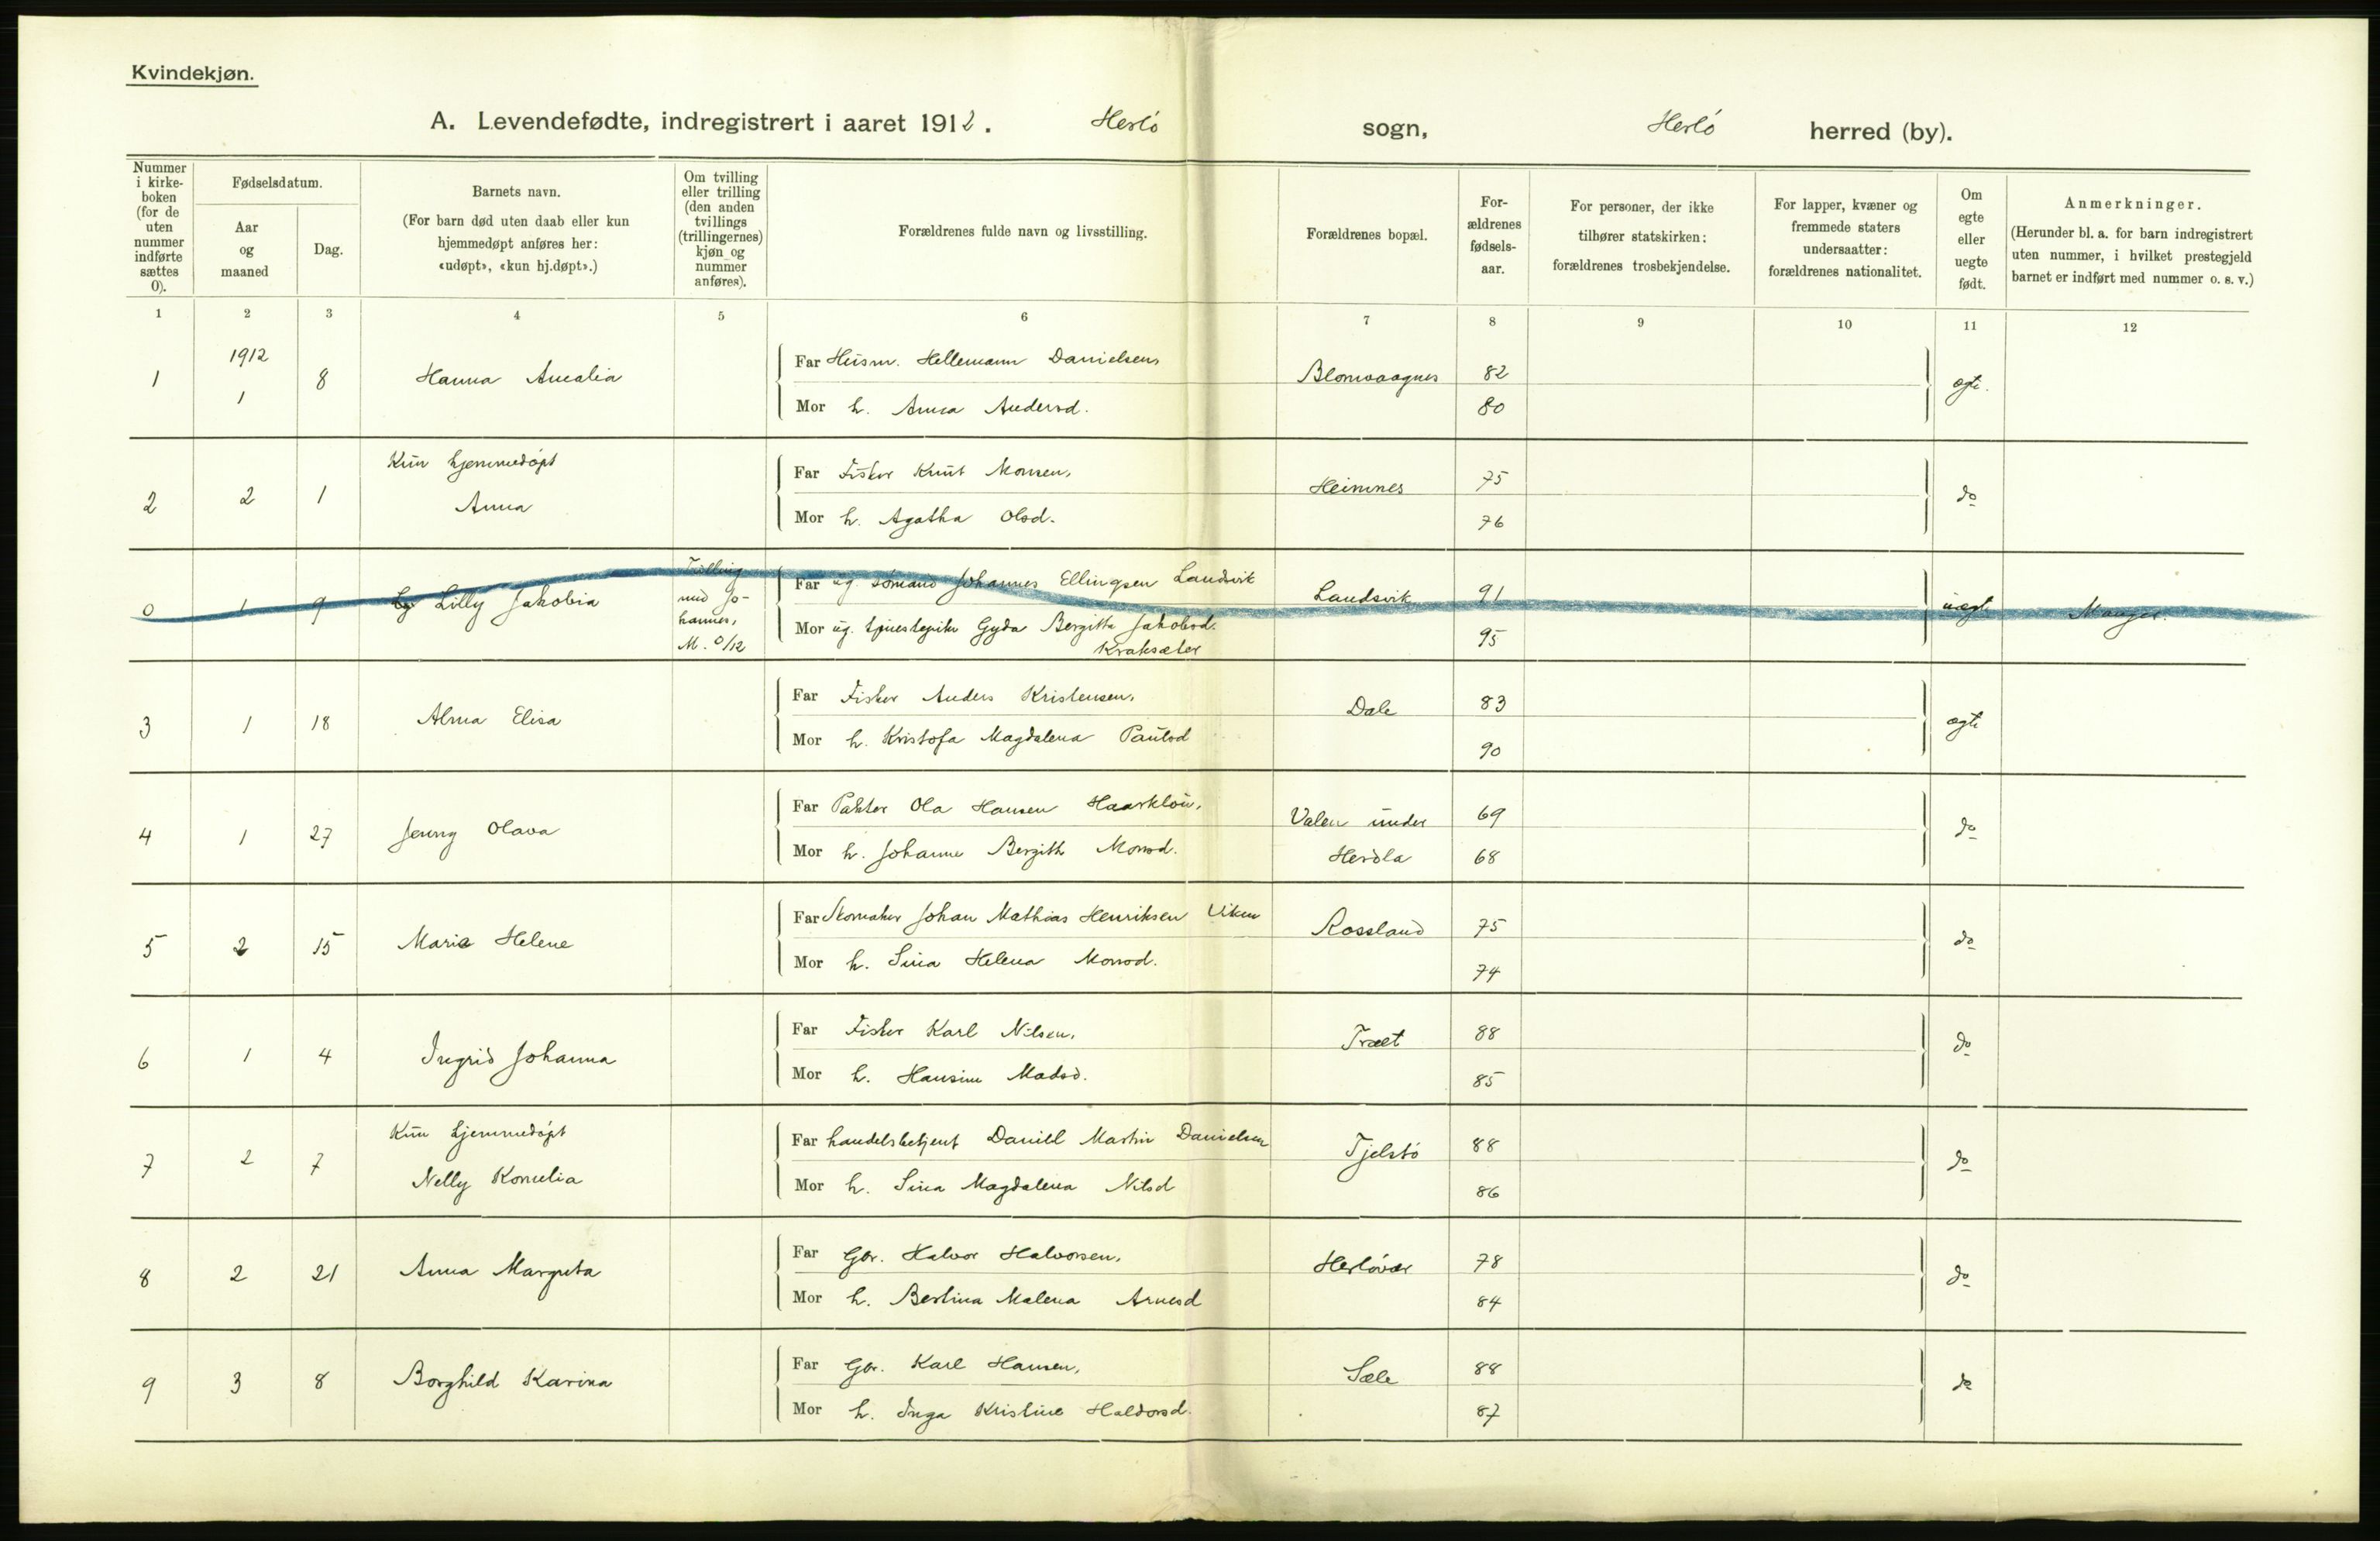 Kvindekjøn.
A. Levendefødte, indregistrert i aaret 1912. Herlö sogn, Herlö herred (by).
Nummer i kirke-boken (for de uten nummer indførte sættes 0).
Fødselsdatum.
Aar og maaned
Dag.
Barnets navn.
(For barn død uten daab eller kun hjemmedøpt anføres her: «udøpt», «kun hj.døpt».)
Om tvilling eller trilling (den anden tvillings (trillingernes) kjøn og nummer anføres).
Forældrenes fulde navn og livsstilling.
Forældrenes bopæl.
For-ældrenes fødsels-aar.
For personer, der ikke tilhører statskirken: forældrenes trosbekjendelse.
For lapper, kvæner og fremmede staters undersaatter: forældrenes nationalitet.
Om egte eller uegte født.
Anmerkninger.
(Herunder bl. a. for barn indregistrert uten nummer, i hvilket prestegjeld barnet er indført med nummer o. s. v.)
1 2 3 4 5 6 7 8 9 10 11 12
1912
1 1 8 Hanna Amalia Far Husm. Hellemann Danielsen, Blomvaagnes 82 egte.
Mor h. Anna Andersd. 80
Kun hjemmedöpt
2 2 1 Anna Far Fisker Knut Monsen, Heimnes 75 do
Mor h. Agatha Olsd. 76
0 1 9 Lilly Jakobia Tvilling med Jo-hannes, M. 0/12 Far ug. sömand Johannes Ellingsen Landsvik Landsvik 91 uegte Manger.
Mor ug. tjenestepike Gyda Bergitte Jakobsd. Kraksæter 95
3 1 18 Alma Elisa Far Fisker Anders Kristensen, Dale 83 egte
Mor h. Kristofa Magdalena Paulsd 90
4 1 27 Jenny Olava Far Pakter Ola Hansen Haarklou, Valen under 69 do
Mor h. Johanne Bergith Monsd. Herdla 68
5 2 15 Marie Helene Far Skomaker Johan Mathias Henriksen Viken Rossland 75 do
Mor h. Sina Helena Monsd. 74
6 1 4 Ingrid Johanna Far Fisker Karl Nilsen, Træt 88 do
Mor h. Hansine Madsd. 85
Kun hjemmedöpt
7 2 7 Nelly Kornelia Far handelsbetjent Daniel Martin Danielsen Tjelstö 88 do
Mor h. Sina Magdalena Nilsd 86
8 2 21 Anna Margreta Far Gbr. Halvor Halvorsen, Herlövær 78 do
Mor h. Bertina Malena Arnesd 84
9 3 8 Borghild Karina Far Gbr. Karl Hansen, Sæle 88 do
Mor h. Inga Kristine Haldorsd. 87